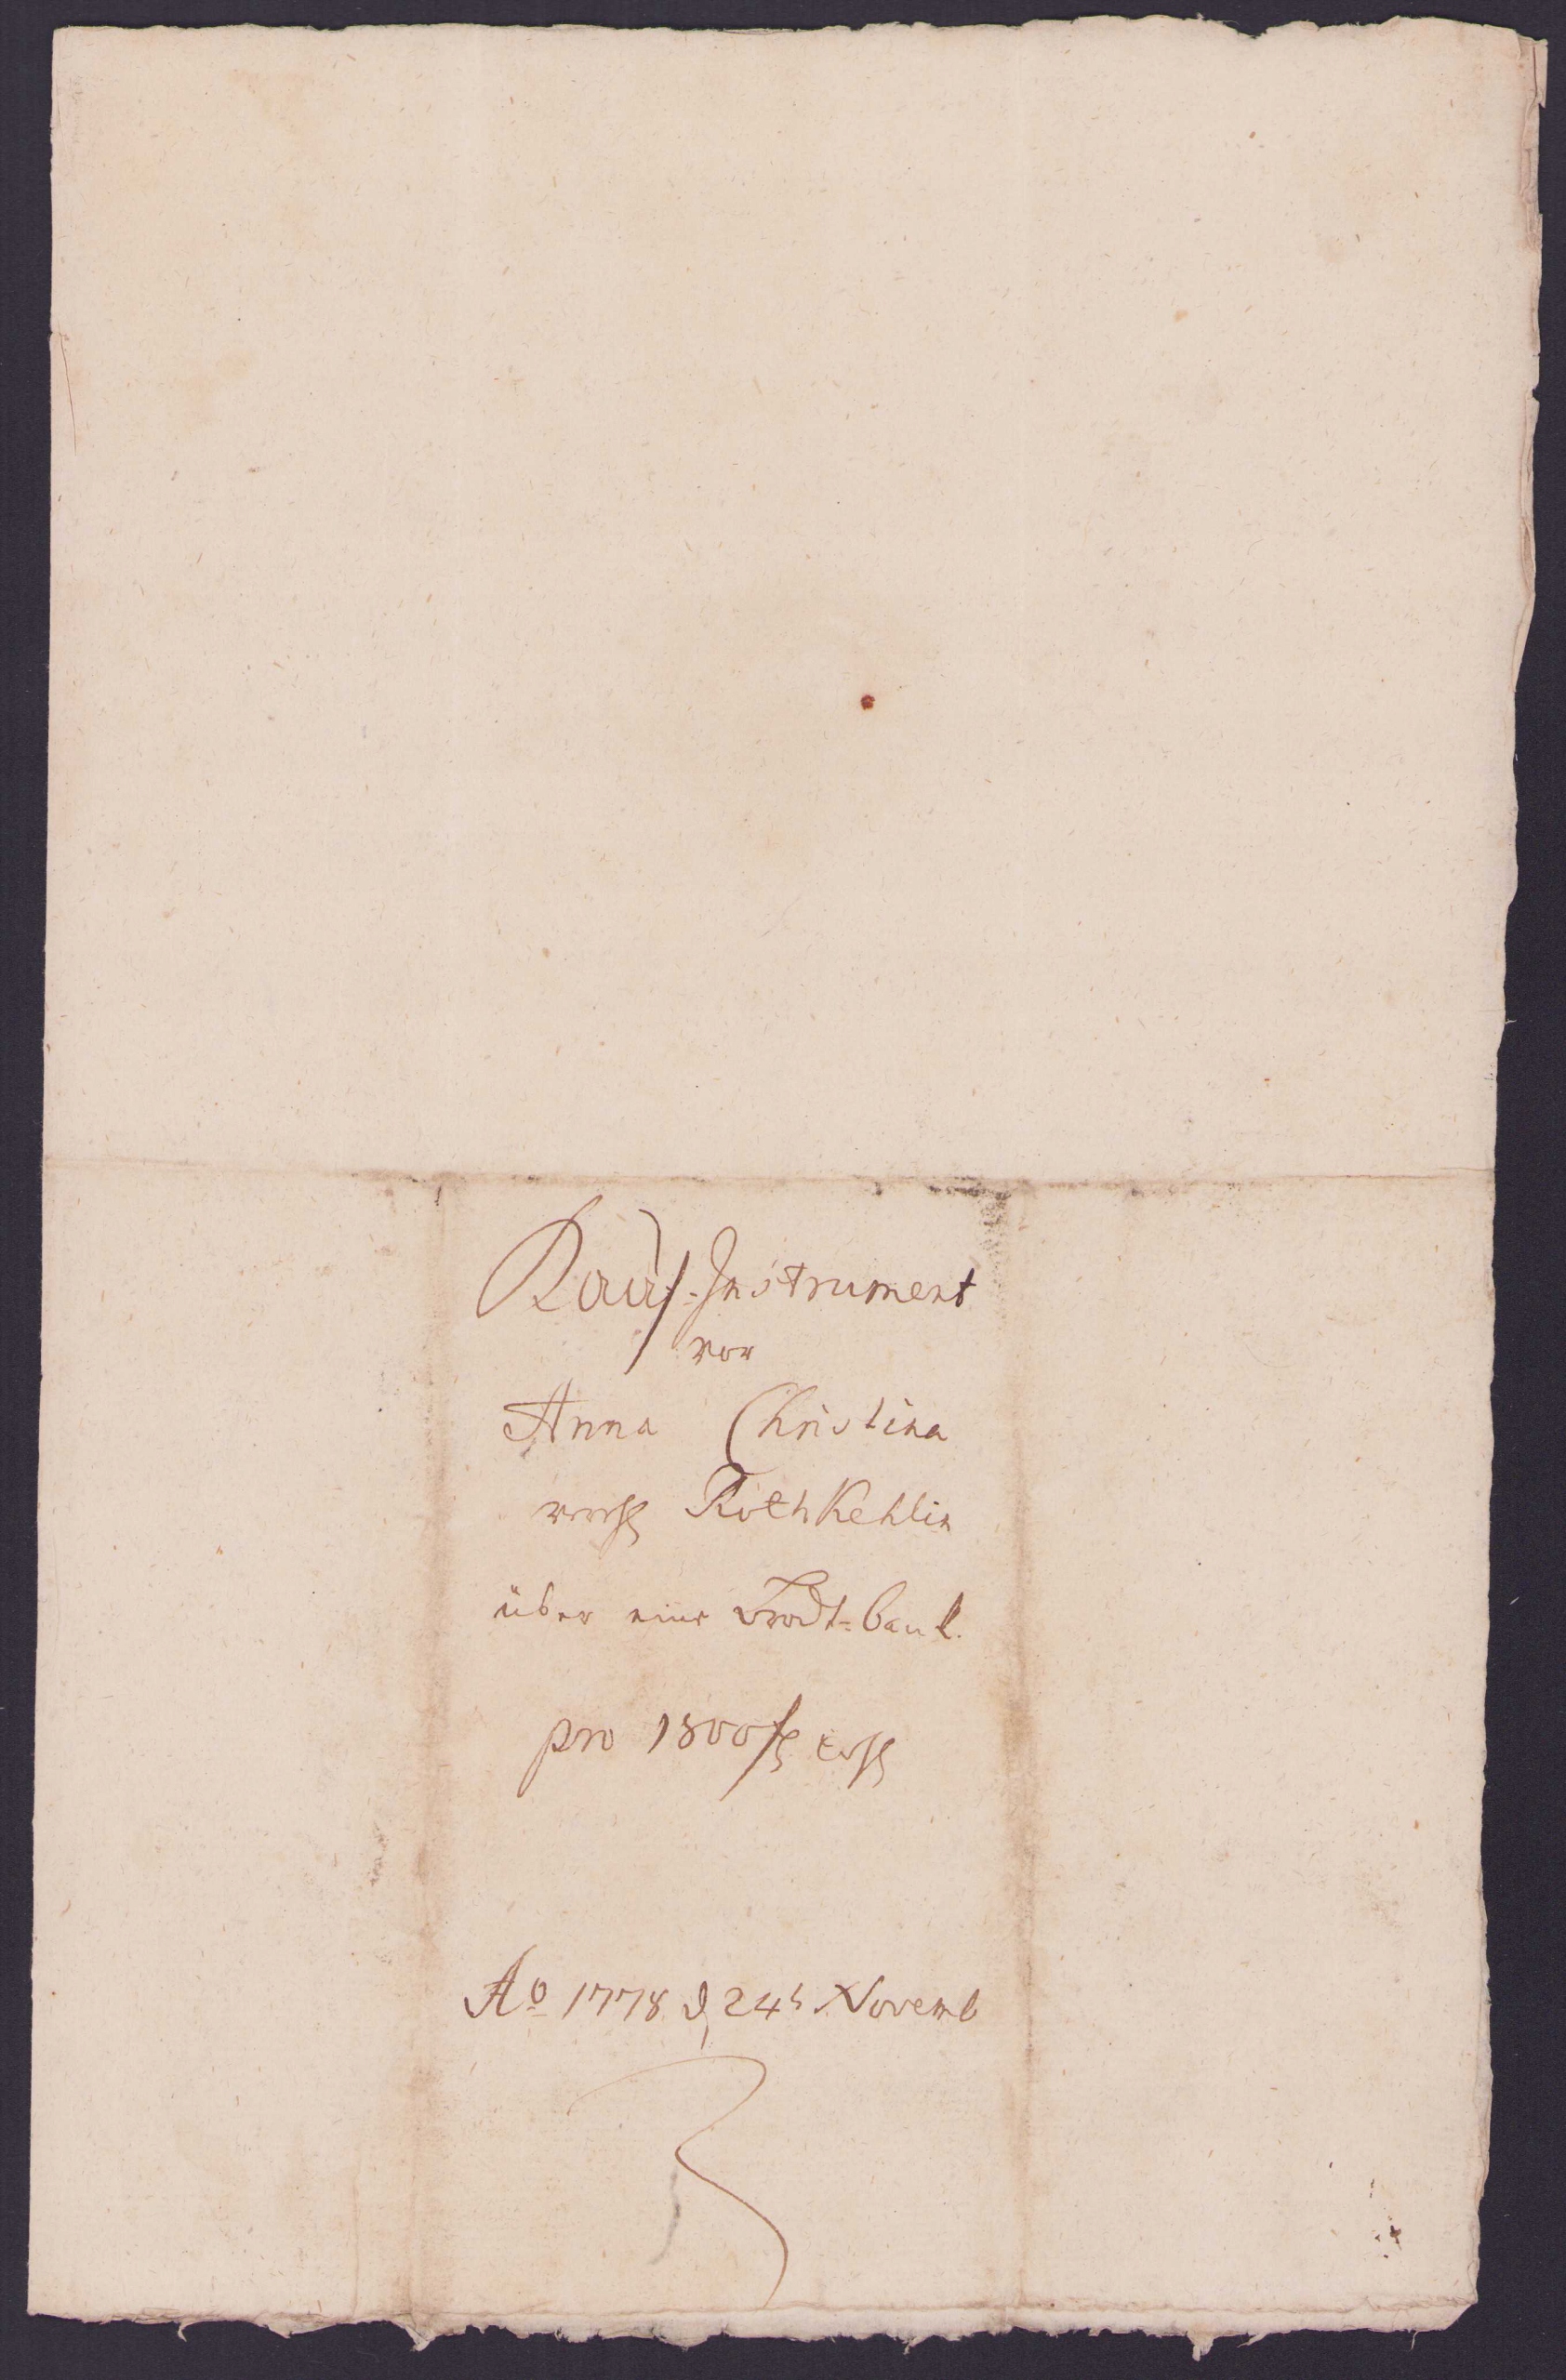 Kauf-Instrument
vor
Anna Christina
Rothkehlin
über eine Brodt-banck.
pro 1800
Ao 1778 d 24t Novemb